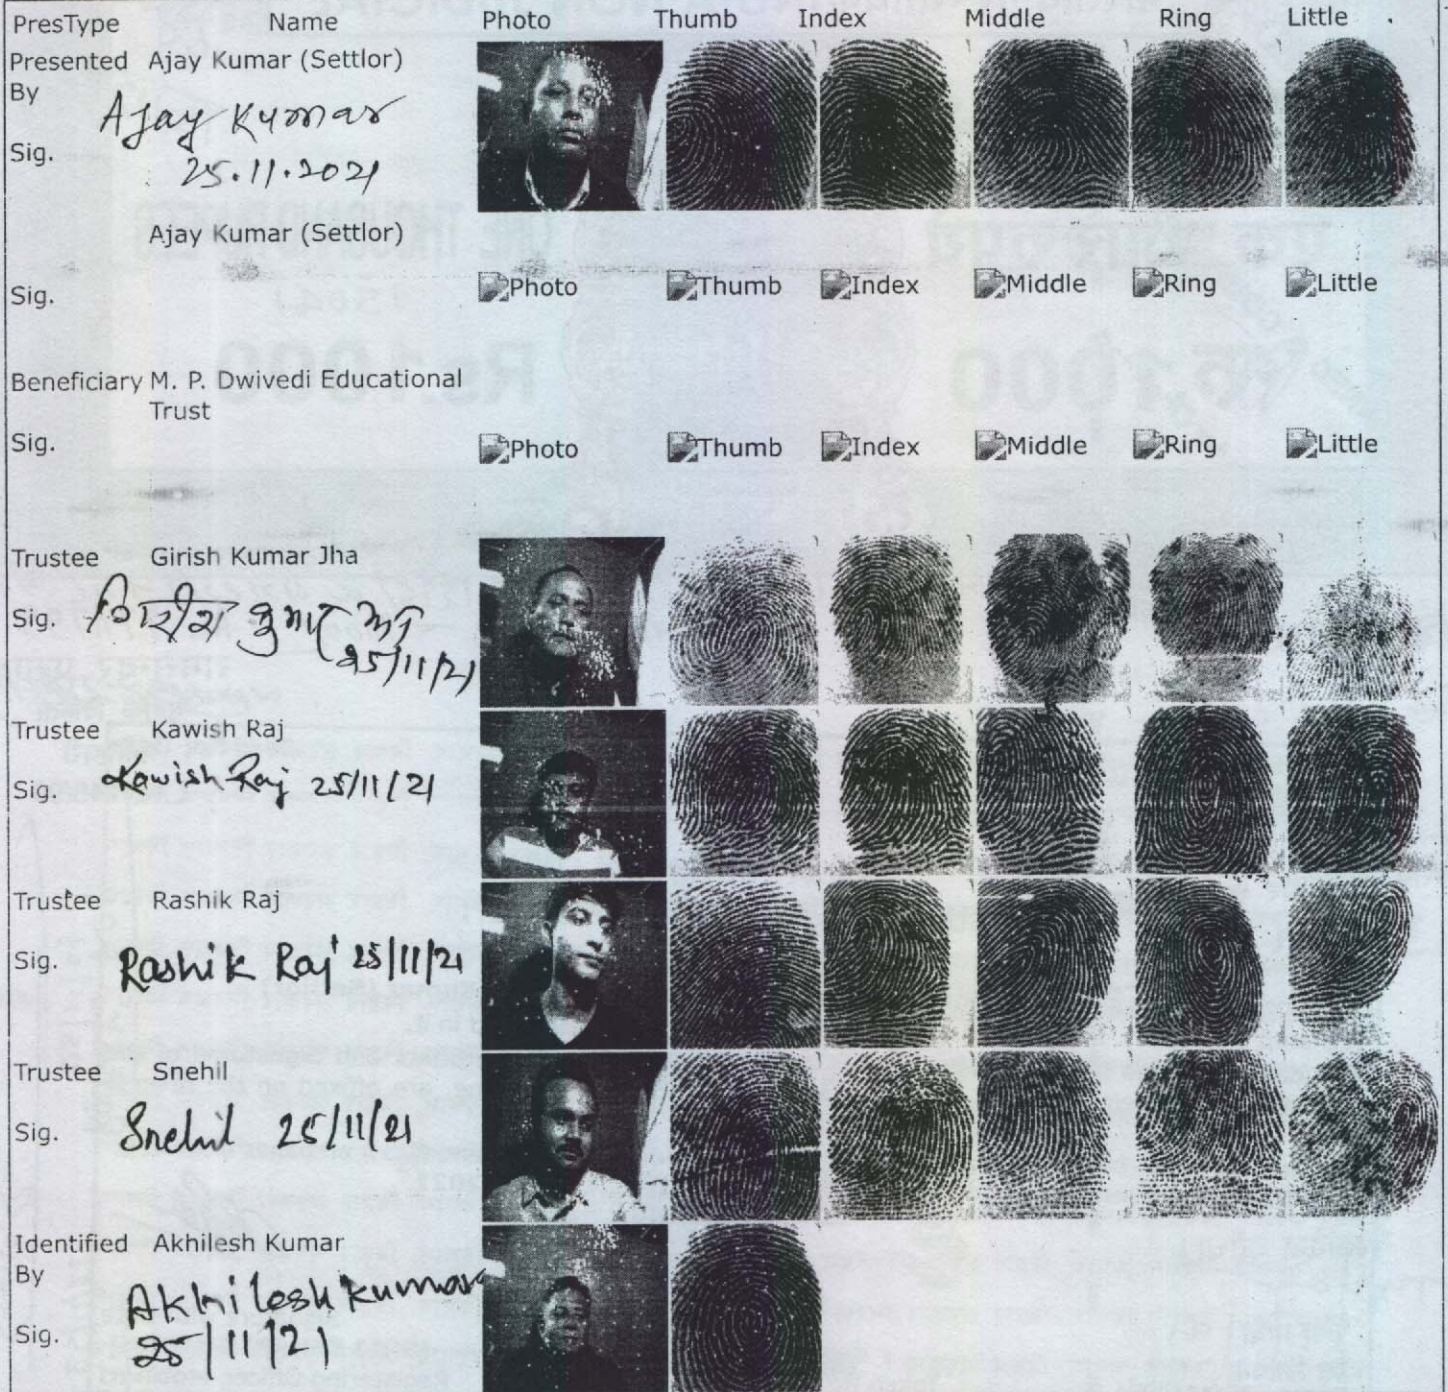 PresType Name Photo Thumb Index Middle Ring Little
Presented By Ajay Kumar (Settlor)
Sig. Ajay Kumar
25.11.2021
Ajay Kumar (Settlor)
Sig. Photo Thumb Index Middle Ring Little
Beneficiary M. P. Dwivedi Educational
Trust
Sig. Photo Thumb Index Middle Ring Little
Trustee Girish Kumar Jha
Sig. गिरीश कुमार झा
25/11/21
Trustee Kawish Raj
Sig. Kawish Raj 25/11/21
Trustee Rashik Raj
Sig. Rashik Raj 25/11/21
Trustee Snehil
Sig. Snehil 25/11/21
Identified Akhilesh Kumar
By
Akhilesh Kumar
Sig. 25/11/21